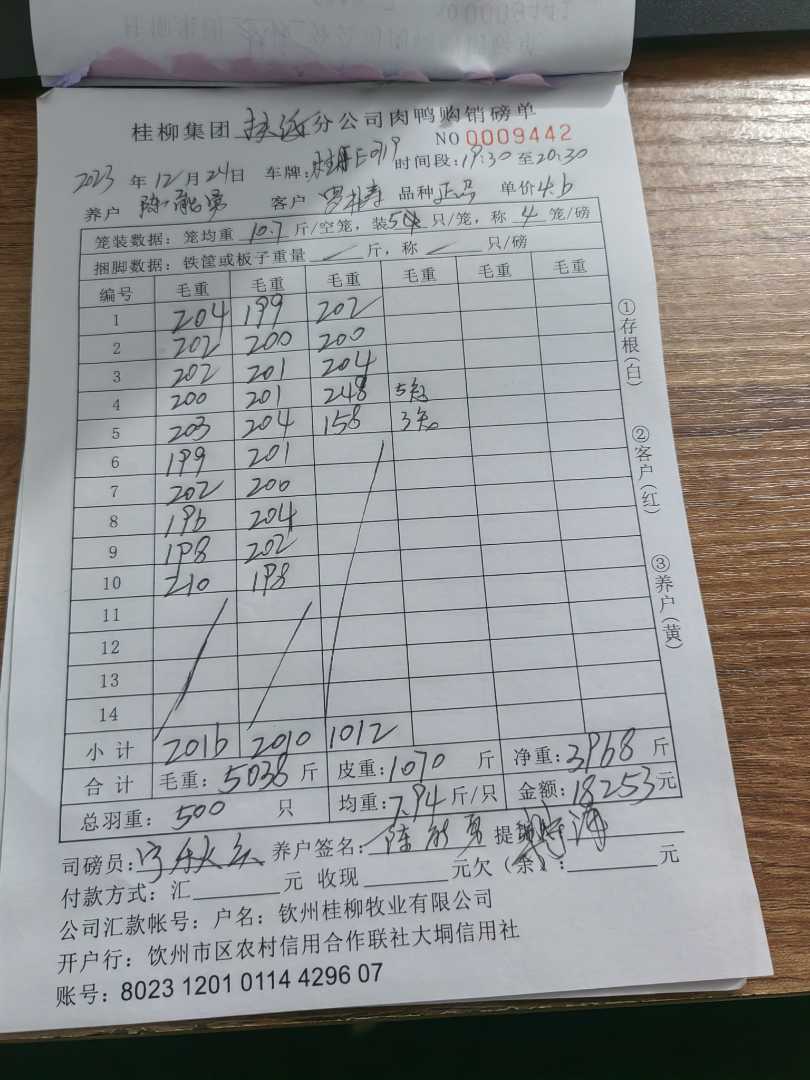 桂柳集团 分公司肉鸭购销磅单
NO 0009442
2023 年 12 月 24 日 车牌: 时间段: 19:30 至 20:30
养户 陈 客户 罗 寿 品种 正马 单价 4.6
笼装数据: 笼均重 10.7 斤/空笼, 装 只/笼, 称 4 笼/磅
捆脚数据: 铁筐或板子重量 斤, 称 只/磅
编号 毛重 毛重 毛重 毛重 毛重 毛重
1 204 199 202
2 202 200 200
3 202 201 204
4 200 201 248 5
5 203 204 158 3
6 199 201
7 202 200
8 196 204
9 198 202
10 210 198
11
12
13
14
小计 2016 2010 1012
合计 毛重: 5038 斤 皮重: 1070 斤 净重: 3968 斤
总羽重: 500 只 均重: 7.94 斤/只 金额: 18253 元
司磅员: 养户签名: 陈 提
付款方式: 汇 元 收现 元欠(余): 元
公司汇款帐号: 户名: 钦州桂柳牧业有限公司
开户行: 钦州市区农村信用合作联社大垌信用社
账号: 8023 1201 0114 4296 07
①存根(白)
②客户(红)
③养户(黄)